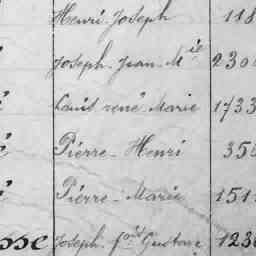 Henri Joseph 118
Joseph Jean Mie 230
é Louis rené Marie 1733
é Pierre-Henri 350
é Pierre-Marie 151
sse Joseph fois Gustave 1236